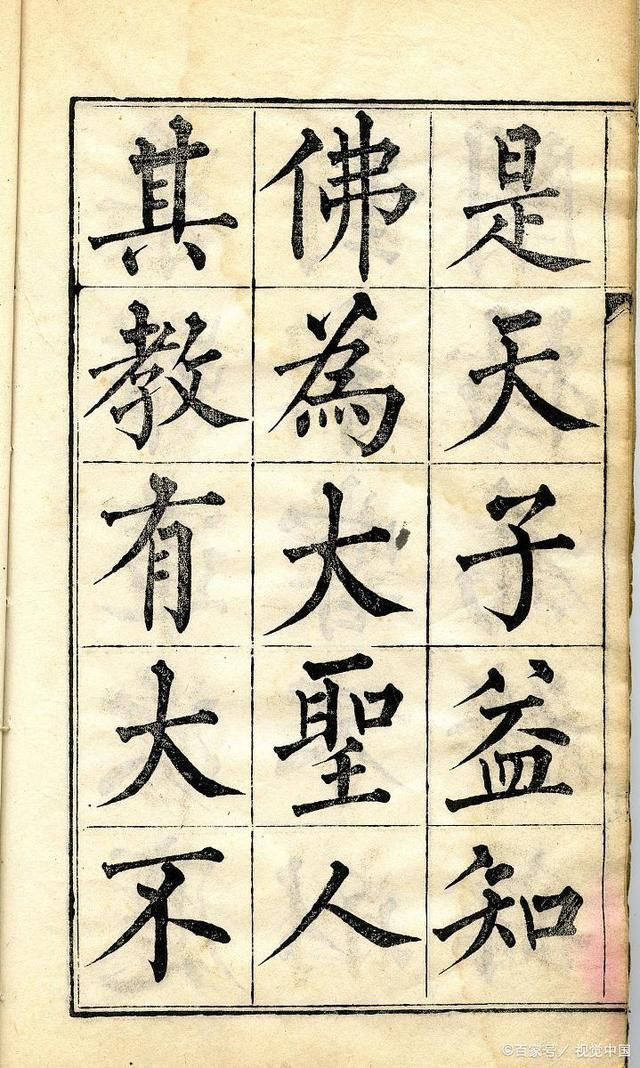 是天子益知
佛為大聖人
其教有大不
©百家号／视觉中国